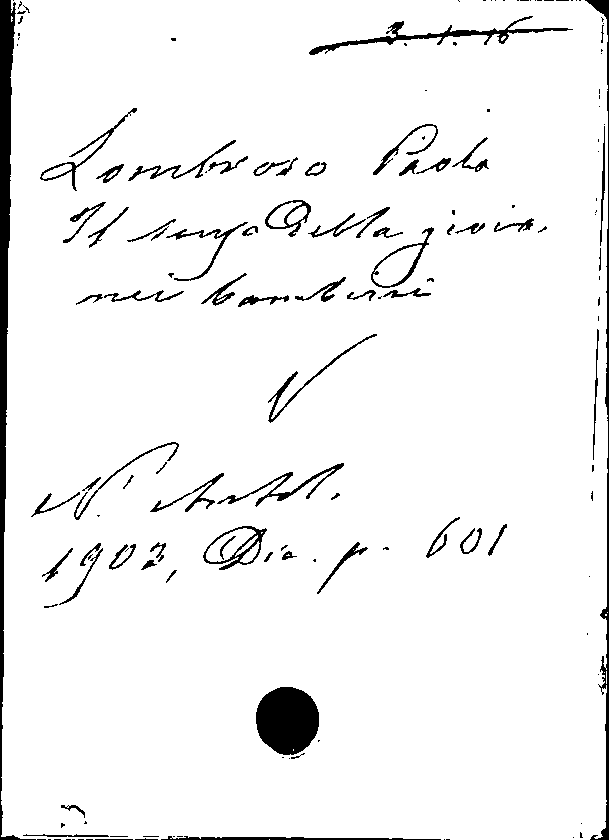 3. 1. 16
Lombroso Paola
Il senso della gioia
nei bambini
N. Antol.
1903, Dic. p. 601